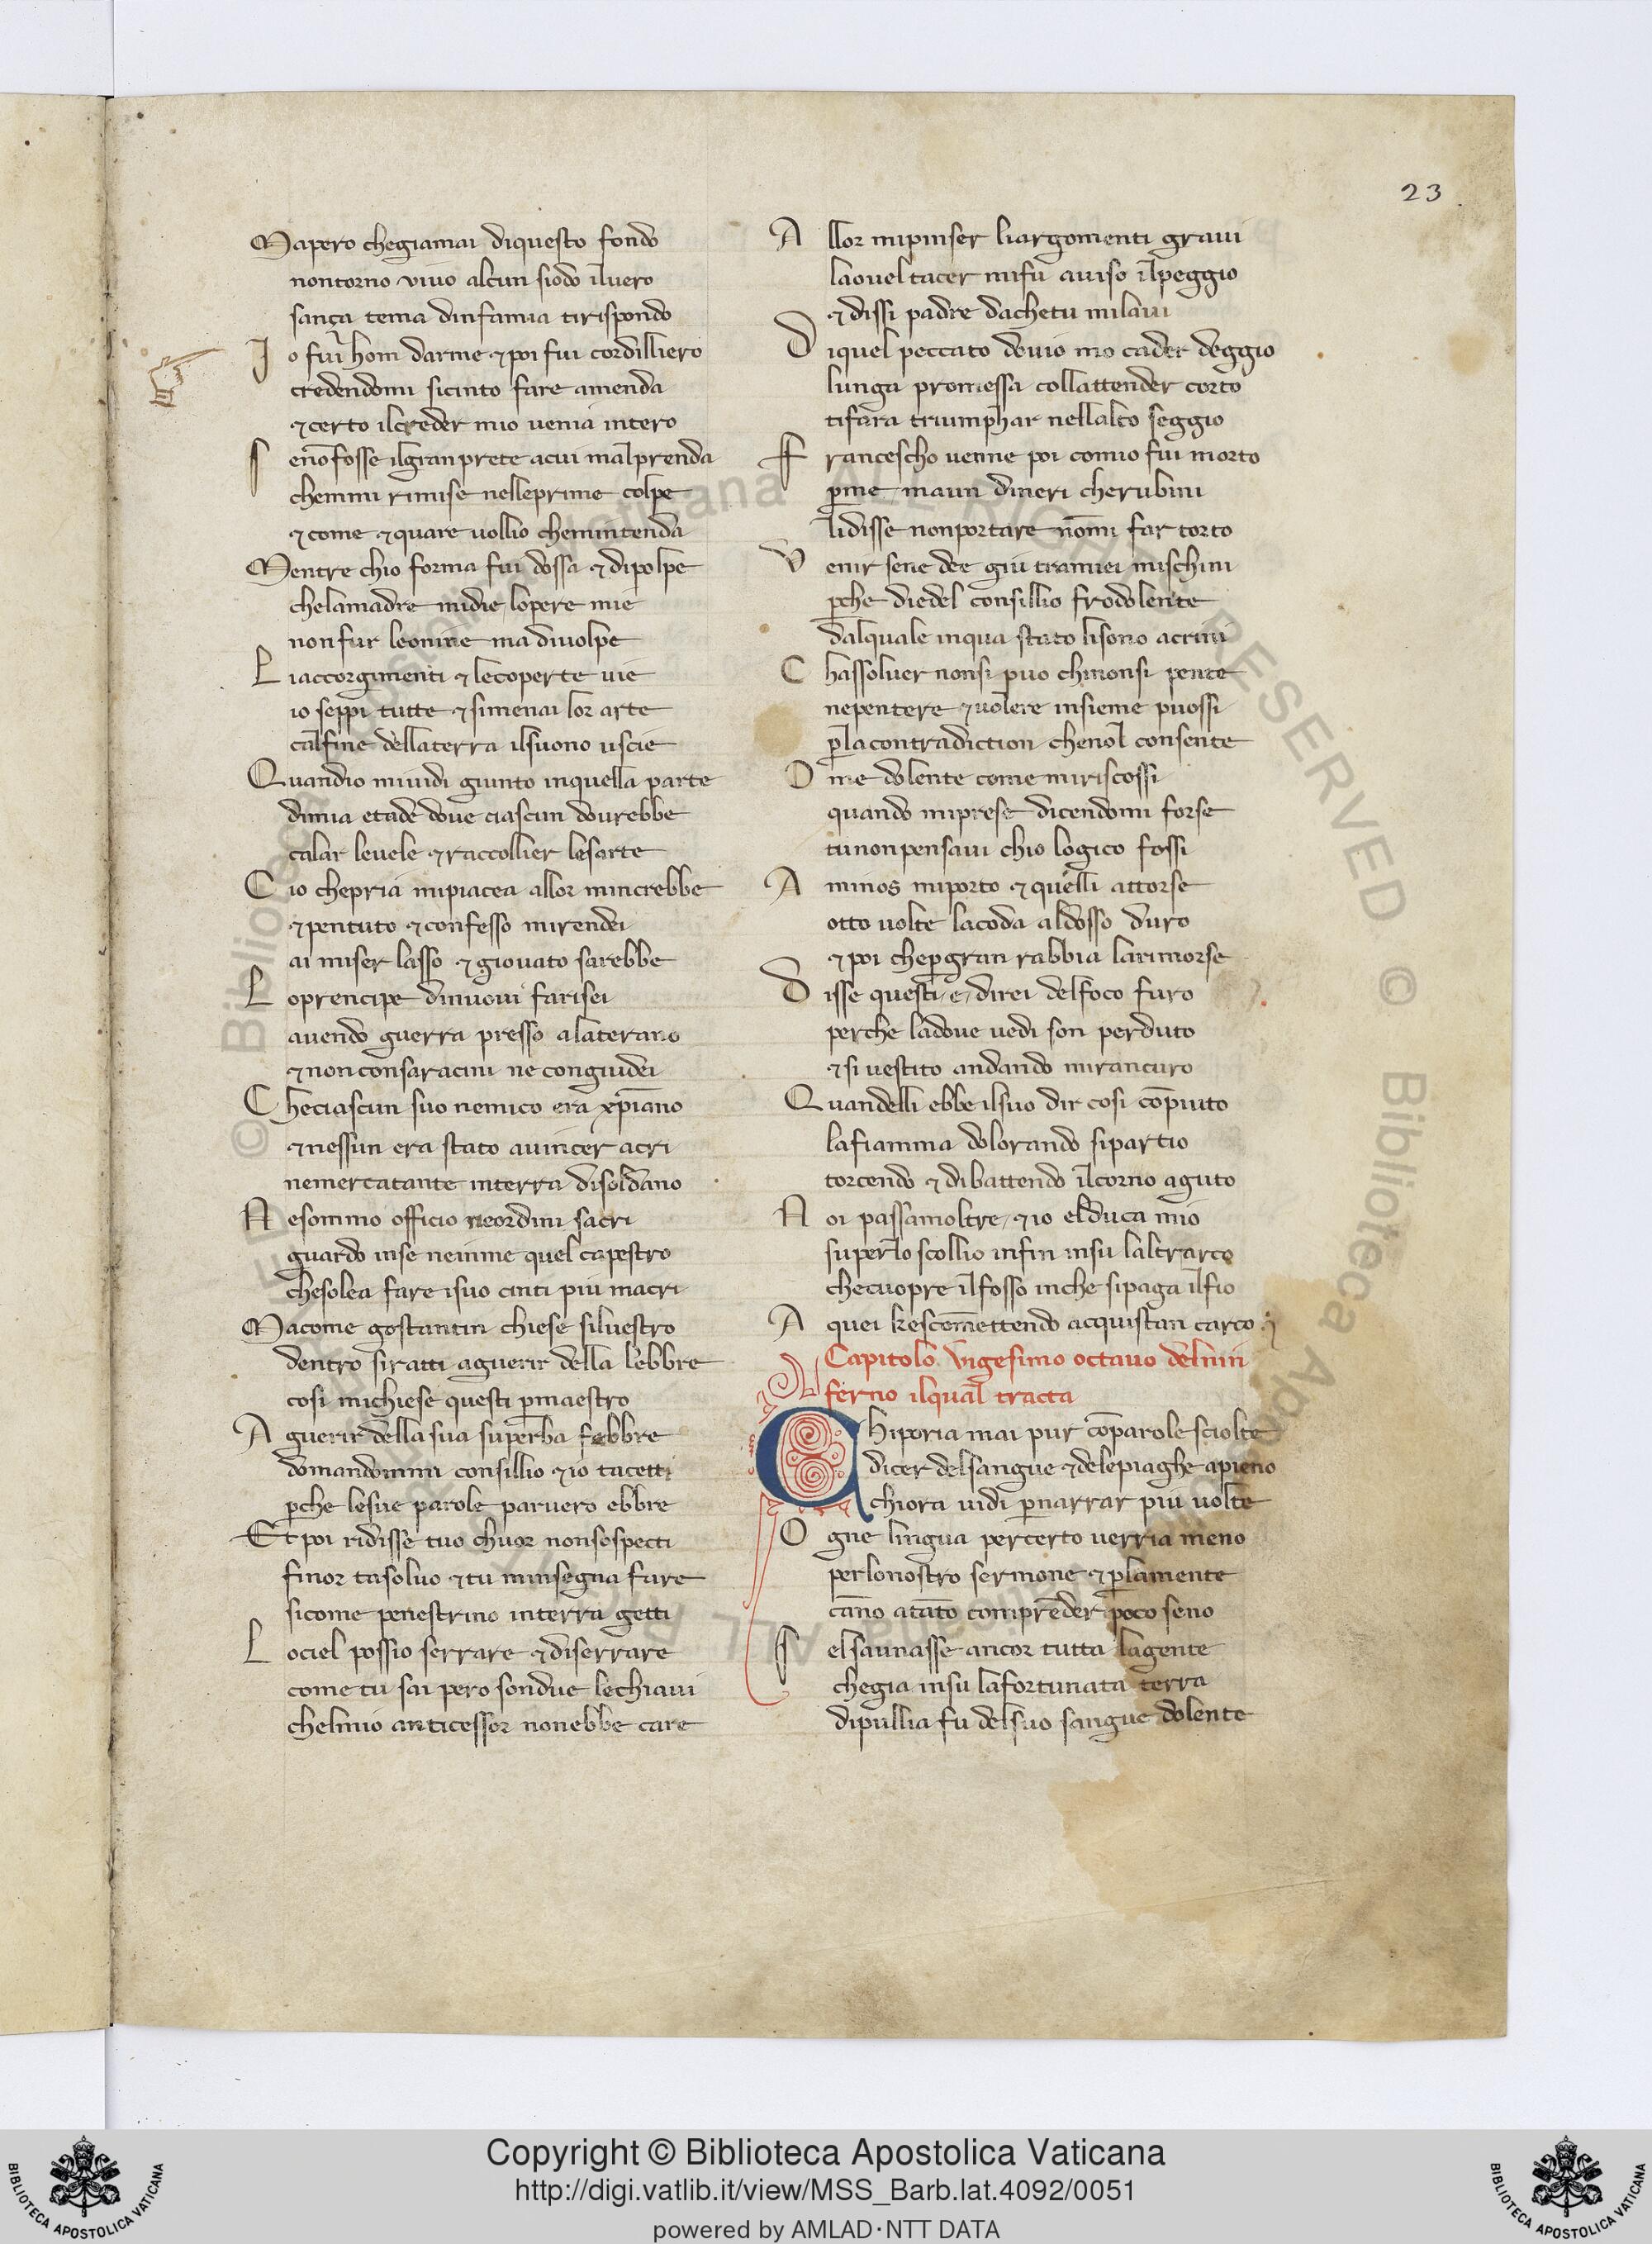 23
Mapero chegiamai diquesto fondo
nontorno vivo alcun siodo iluero
sança tema dinfamia tirispondo
Io fui hom darme ⁊ poi fui cordilliero
credendomi sicinto fare amenda
⁊ certo ilcreder mio uenia intero
Sen̄o fosse ilgran prete acui malprenda
chemmi rimise nelleprime colpe
⁊ come ⁊ quare uollio chemmintenda
Mentre chio forma fui dossa ⁊ dipolpe
chelamadre midie lopere mie
nonfur leonine ma diuolpe
Liaccorgimenti ⁊ lecoperte uie
io seppi tutte ⁊ simenai lor arte
calfine dellaterra ilsuono uscie
Quandio miuidi giunto inquella parte
dimia etade doue ciascun dourebbe
calar leuele ⁊ raccollier lesarte
Cio chepria mipiacea allor mincrebbe
⁊ pentuto ⁊ confesso mirendei
ai miser lasso ⁊ giouato sarebbe
Loprencipe dinuoui farisei
auendo guerra presso alaterano
⁊ non consaracini ne congiudei
Checiascun suo nemico era xp̄iano
⁊ nessun era stato auincer acri
nemercatante interra disoldano
Nesommo officio neordini sacri
guardo inse neinme quel capestro
chesolea fare isuo cinti piu macri
Macome gostantin chiese siluestro
dentro siratti aguerir della lebbre
cosi michiese questi p̱maestro
Aguerir della sua superba febbre
domandommi consillio ⁊ io tacetti
p̱che lesue parole paruero ebbre
Et poi ridisse tuo chuor nonsospecti
finor tasoluo ⁊ tu minsegna fare
sicome penestrino interra getti
Lociel possio serrare ⁊ diserrare
come tu sai pero sondue lechiaui
chelmio anticessor nonebbe care
Allor mipinser liargomenti graui
laouel tacer mifu auiso ilpeggio
⁊ dissi padre dachetu milaui
Diquel peccato douio mo cader deggio
lunga promessa collattender corto
tifara triumphar nellalto seggio
Francescho uenne poi comio fui morto
p̱me maun dineri cherubini
lidisse nonportare nōmi far torto
Venir sene dee giu tramiei mischini
p̱che diedel consillio frodolente
dalquale inqua stato lisono acrini
Chassoluer nonsi puo chinonsi pente
nepentere ⁊ uolere insieme puossi
p̱lacontradiction chenol consente
O me dolente come miriscossi
quando miprese dicendomi forse
tunonpensaui chio logico fossi
A minos miporto ⁊ quelli attorse
otto uolte lacoda aldosso duro
⁊ poi chep̱gran rabbia larimorse
Disse questi e direi delfoco furo
perche ladoue uedi son perduto
⁊ si uestito andando mirancuro
Quandelli ebbe ilsuo dir cosi cōpiuto
lafiamma dolorando sipartio
torcendo ⁊ dibattendo ilcorno aguto
Noi passamoltre ⁊ io elduca mio
superlo scollio infin insu laltrarco
checuopre ilfosso inche sipaga ilfio
A quei kescom̄ettendo acquistan carco
Capitolo vigesimo octauo delnin
ferno ilqual tracta
Chiporia mai pur cōparole sciolte
dicer delsangue ⁊ delepiaghe apieno
chiora uidi p̱narrar piu uolte
Ogne lingua percerto uerria meno
perlonostro sermone ⁊ p̱lamente
cāno atāto comprēder poco seno
Selsaunasse ancor tutta lagente
chegia insu lafortunata terra
dipullia fu delsuo sangue dolente
© Biblioteca Apostolica Vaticana ALL RIGHTS RESERVED
Copyright © Biblioteca Apostolica Vaticana
http://digi.vatlib.it/view/MSS_Barb.lat.4092/0051
powered by AMLAD·NTT DATA
BIBLIOTECA APOSTOLICA VATICANA
BIBLIOTECA APOSTOLICA VATICANA